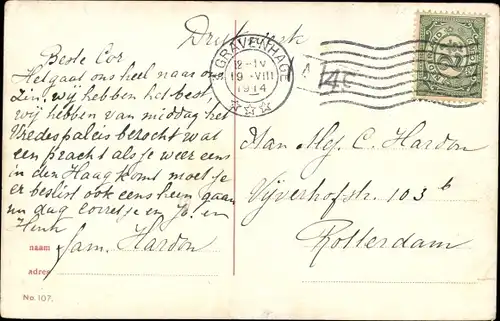 Drukwerk
'S GRAVENHAGE
12-1V
19-VIII
1914
Beste Cor
Het gaat ons heel naar ons
Zin, wij hebben het best,
wij hebben van middag het
Vredespaleis bezocht wat
een pracht als je weer eens
in den Haag komt moet je
er beslist ook eens heen gaan
nu dag corretje en Jo. en
Henk
naam Fam. Hardon
adres
No. 107.
Aan Mej. C. Hardon
Vijverhofstr. 103 b
Rotterdam